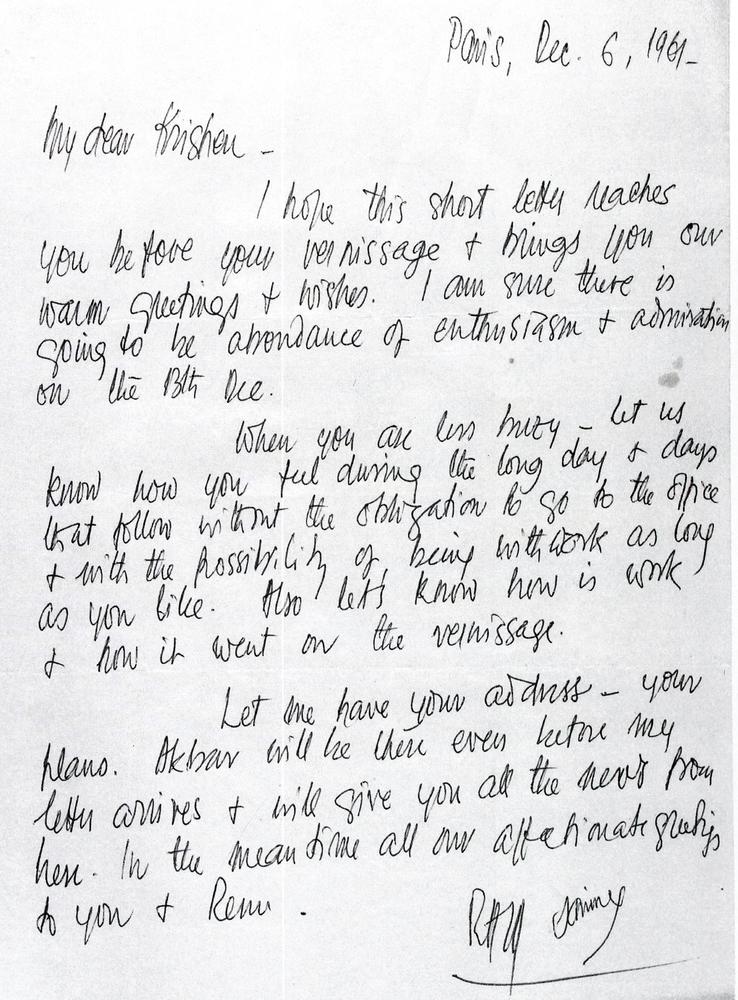 Paris, Dec. 6, 1961-
My dear Krishen -
I hope this short letter reaches
you before your vernissage + brings you our
warm greetings + wishes. I am sure there is
going to be abondance of enthusiasm + admiration
on the 13th Dec.
When you are less busy - let us
know how you feel during the long day + days
that follow without the obligation to go to the office
+ with the possibility of being with work as long
as you like. Also let's know how is work
+ how it went on the vernissage.
Let me have your address - your
plans. Akbar will be there even before my
letter arrives + will give you all the news from
here. In the mean time all our affectionate greetings
to you + Renu.